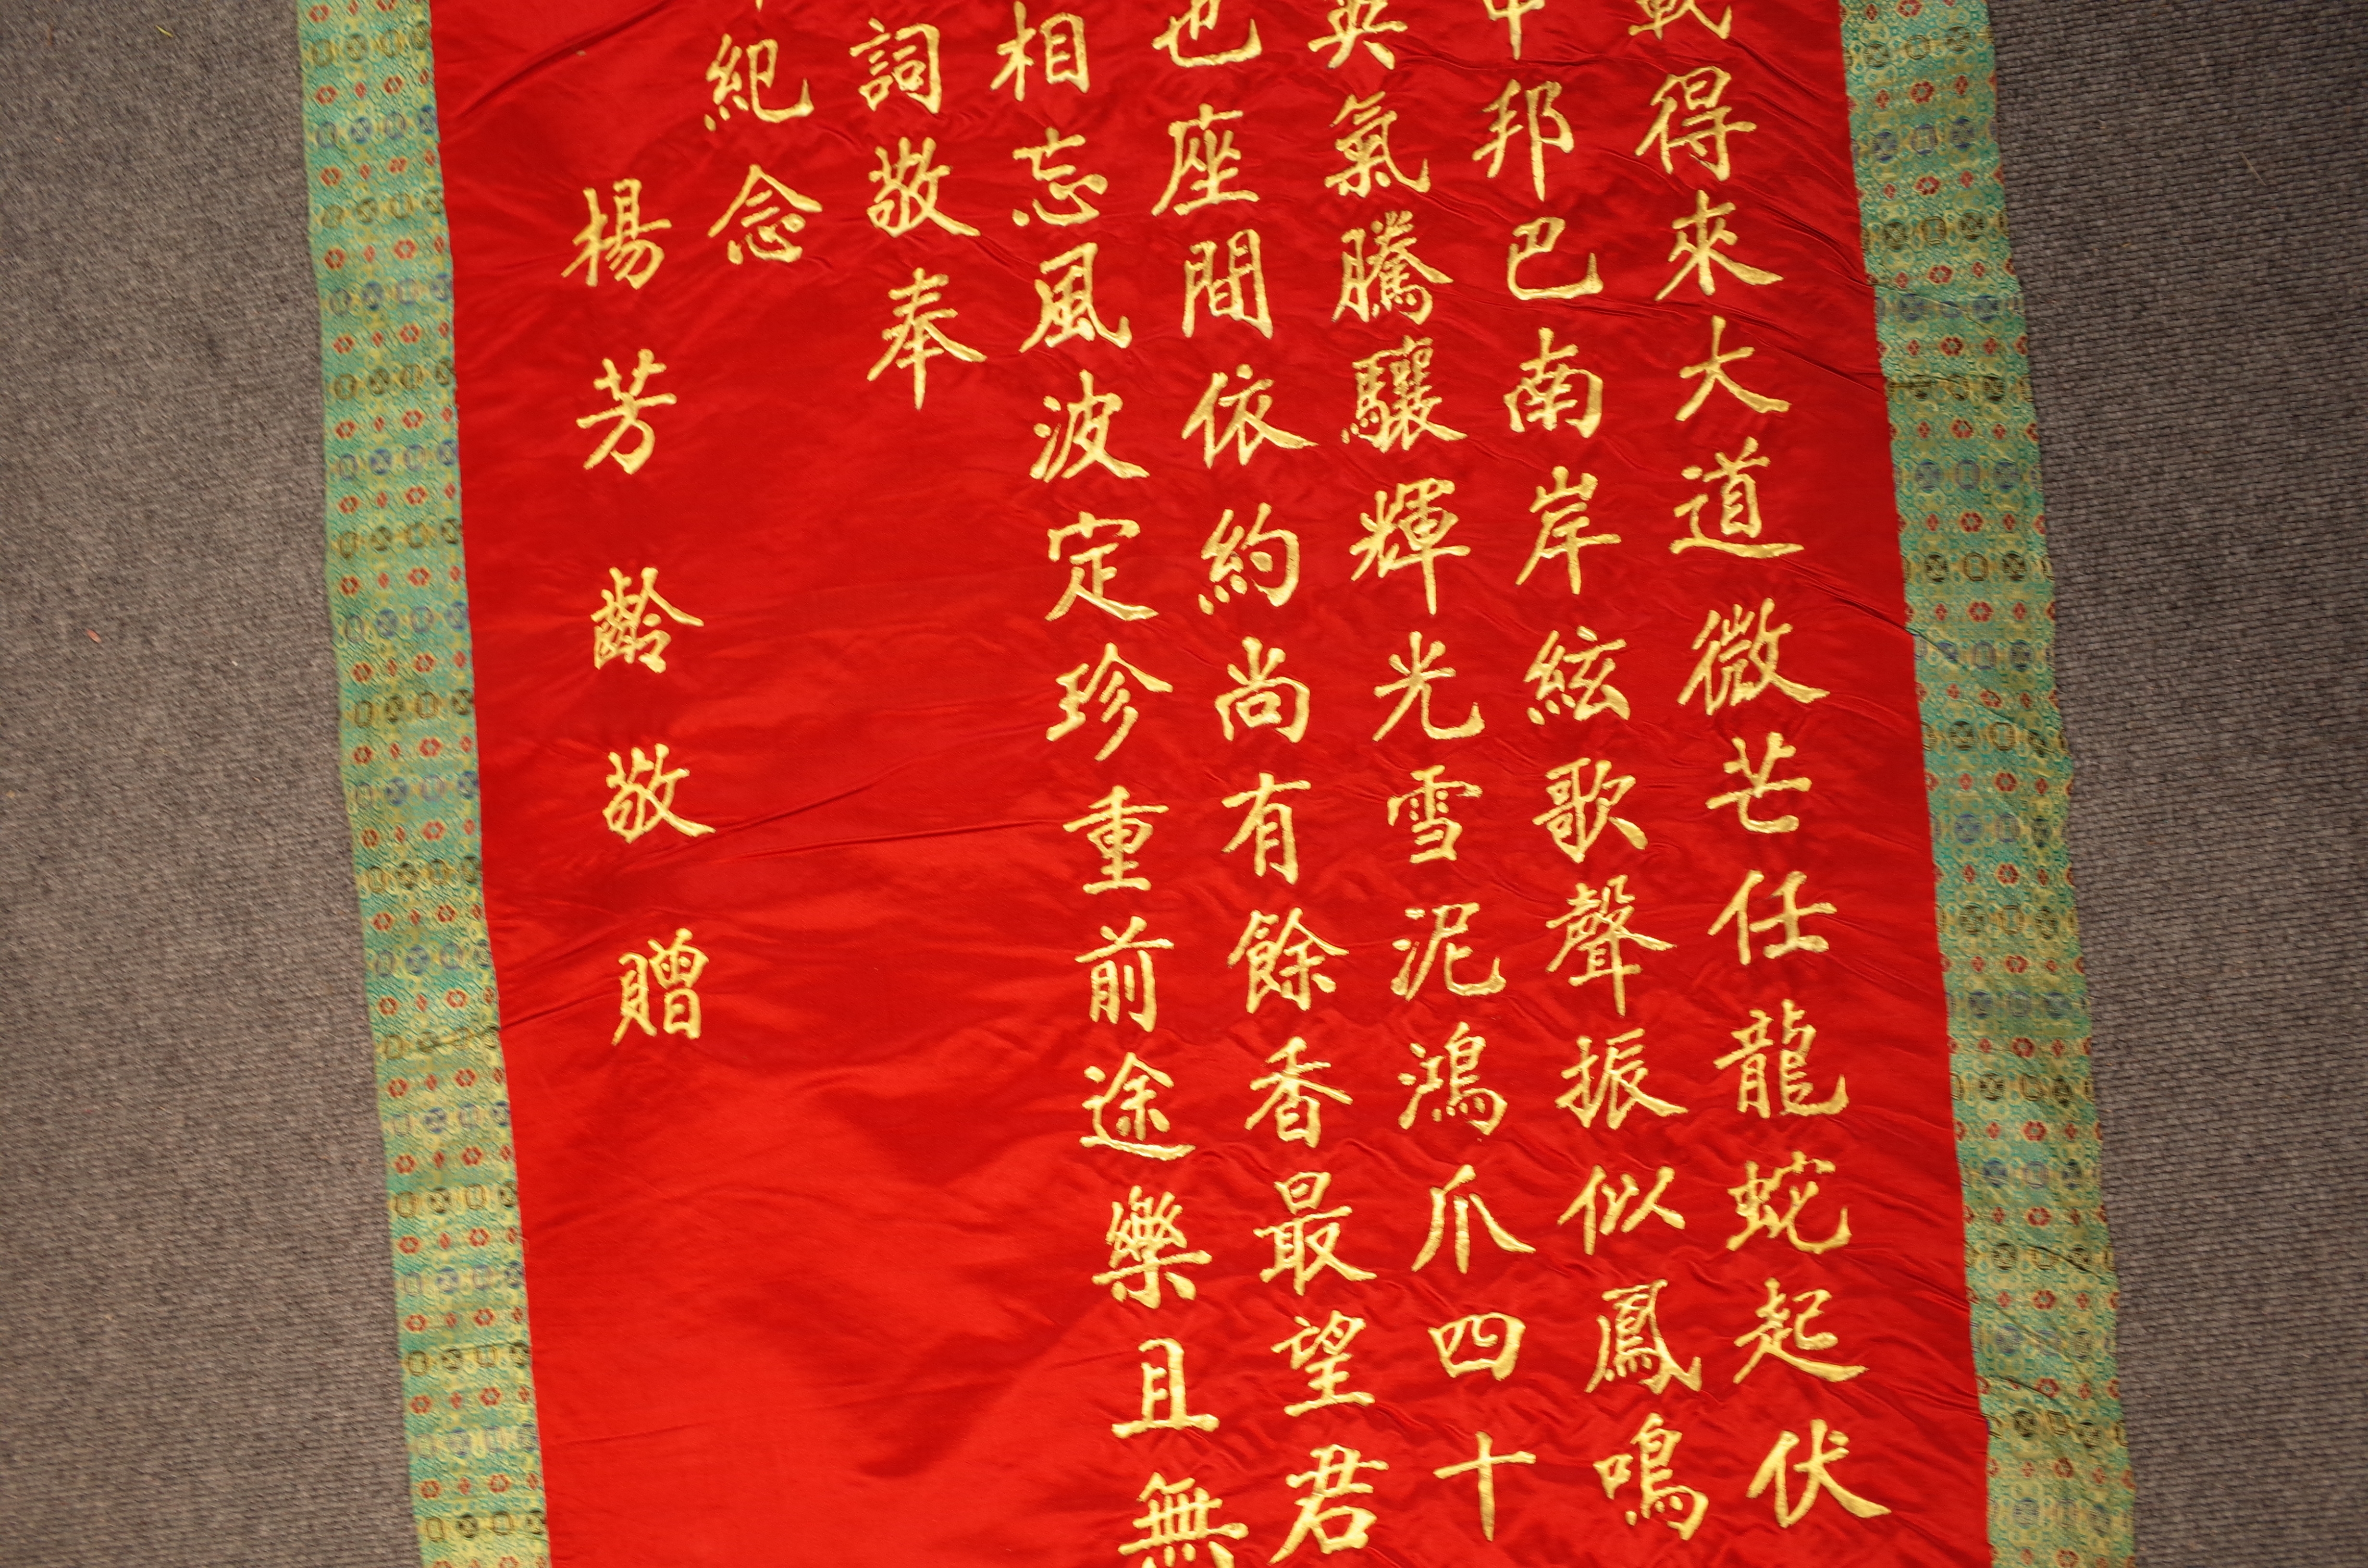 得來大道微芒任龍蛇起伏
邦巴南岸絃歌聲振似鳳鳴
英氣騰驤輝光雪泥鴻爪四十
也座間依約尚有餘香最望君
相忘風波定珍重前途樂且無
詞敬奉
紀念
楊芳齡敬贈